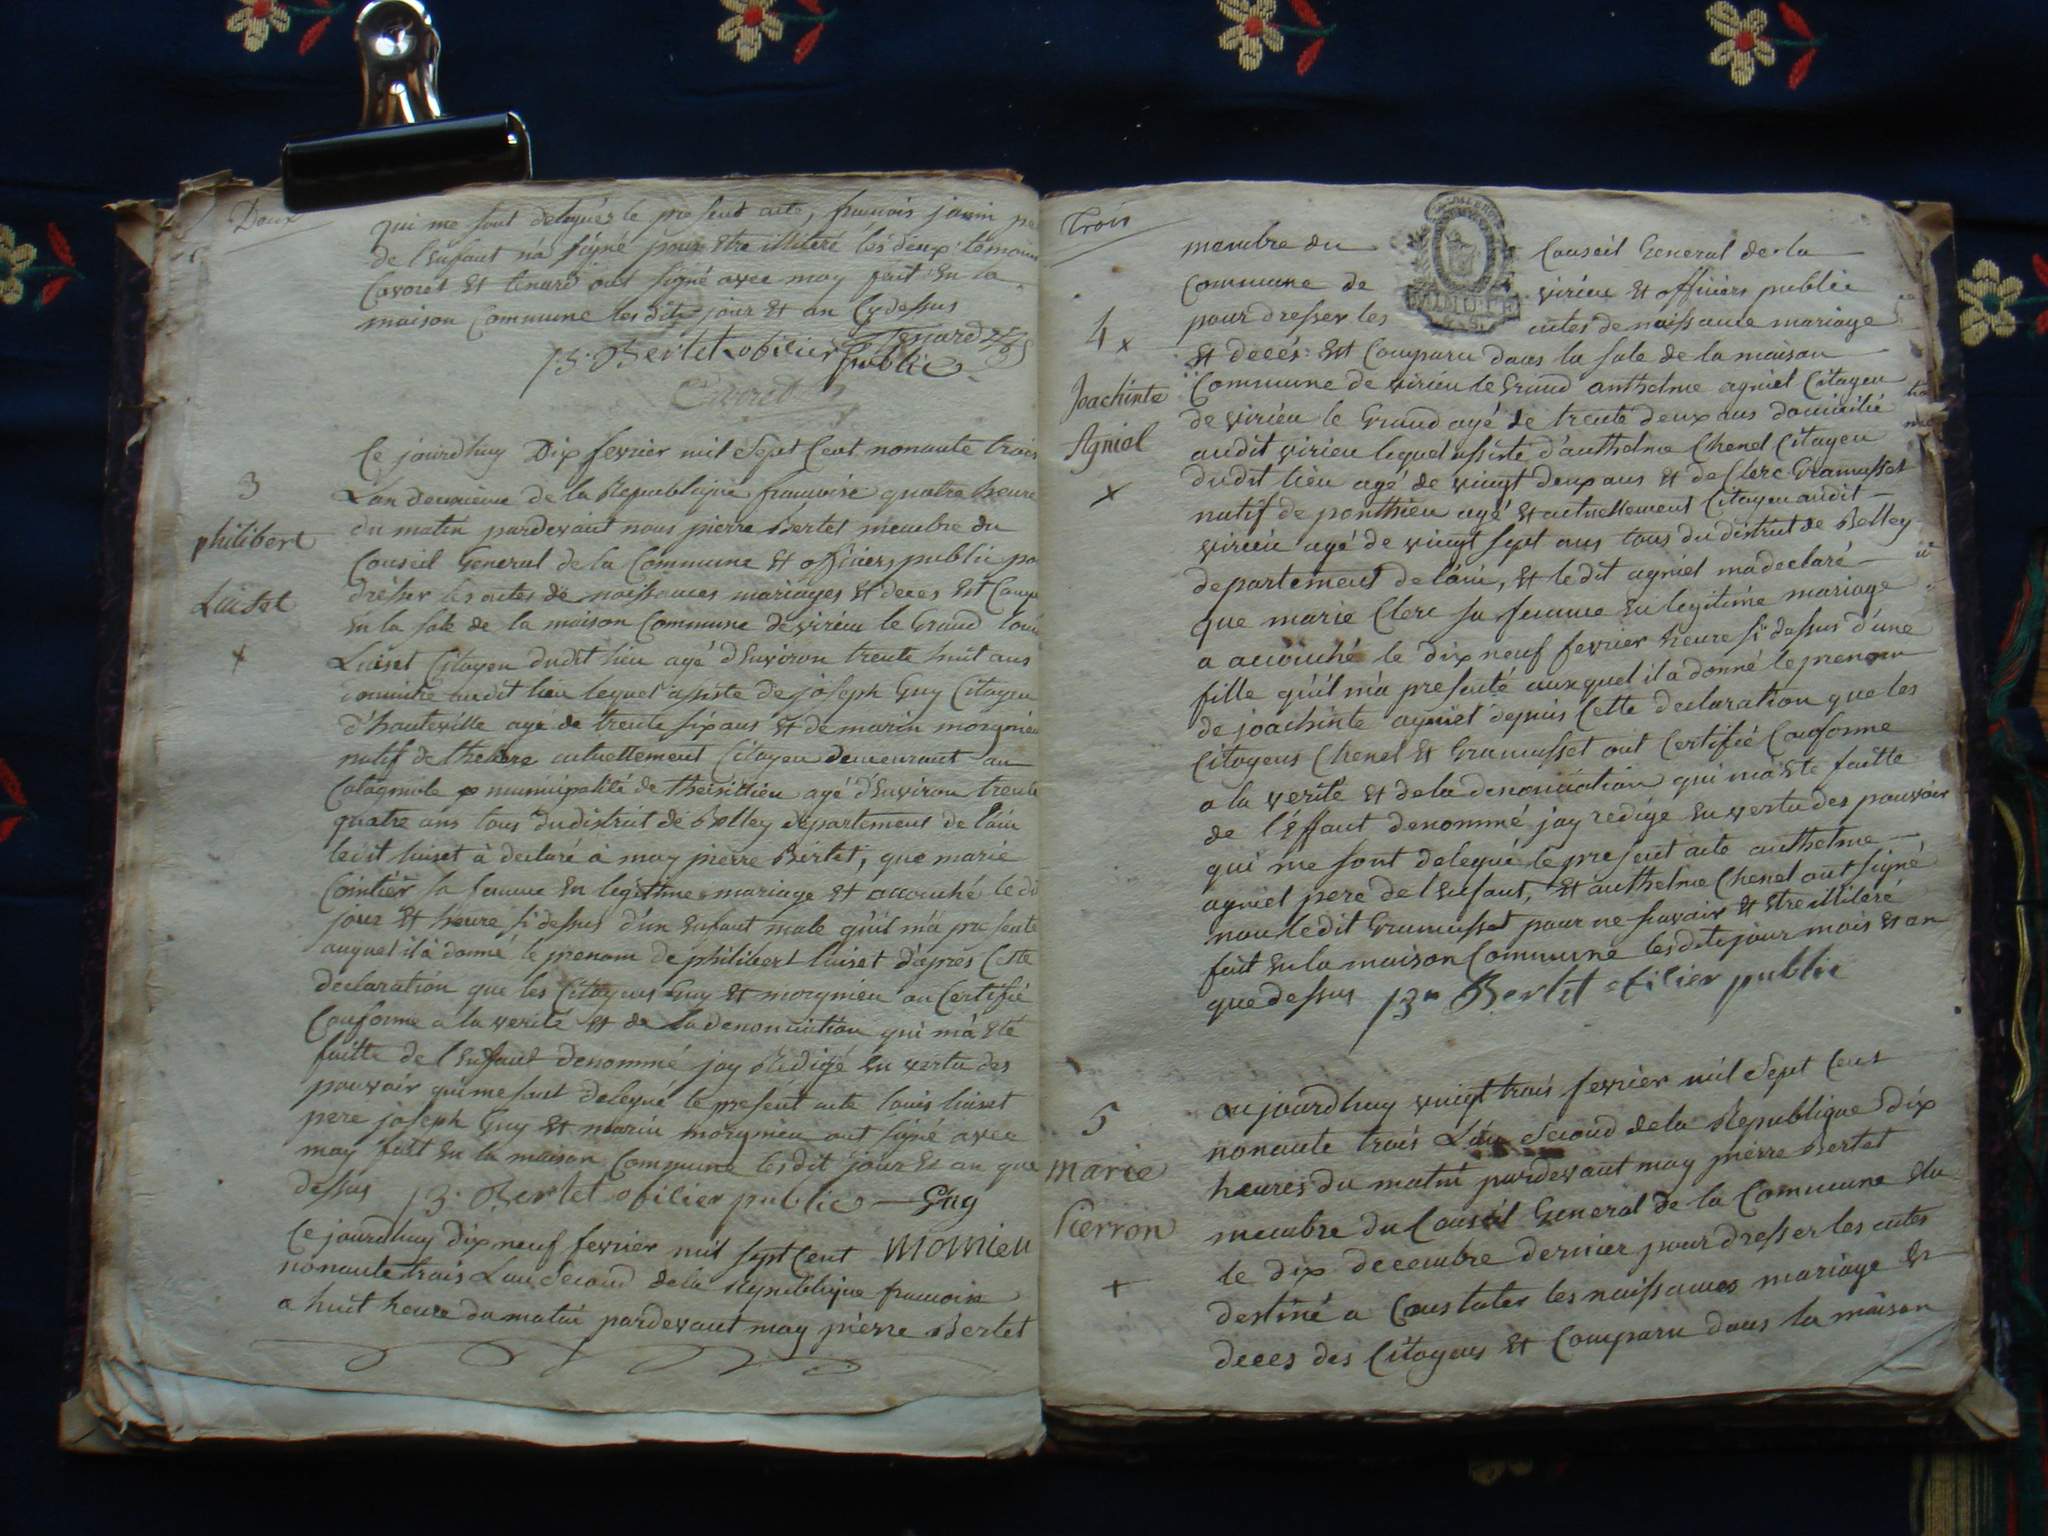 Doux
qui me sont delegués le present acte, francois janin pe
de l'Enfant n'a signé pour Etre illiteré les deux temoins
Cavoret Et tenard ont signé avec moy fait En la
maison Commune lesdits jour Et an Cydessus
Tenard
P. Bertet oficier public
Cavoret
Ce jourdhuy Dix fevrier mil Sept Cent nonante trois
3
Lan deuxieme de la Republique francoise quatre heure
du matin pardevant nous pierre Bertet membre du
philibert
Conseil General de la Commune Et officiers public po
Luiset
dresser les actes de naissances mariages Et deces Est Comp
En la sale de la maison Commune de virieu le Grand louis
Luiset Citoyen dudit lieu agé d'Environ trente huit ans
domicilié audit lieu lequel assisté de joseph Guy Citoyen
d'hauteville agé de trente six ans Et de marin morgnieu
natif de actuellement Citoyen demeurant au
municipalité de agé d'Environ trente
quatre ans tous du district de Belley departement de l'ain
ledit luiset à declaré à moy pierre Bertet, que marie
Cointier sa femme En legitime mariage Et accouché le di
jour Et heure si dessus d'un Enfant male qu'il m'a presenté
auquel il à donné le prenom de philibert luiset d'apres Cette
declaration que les Citoyens Guy Et morgnieu on Certifié
Conforme a la verité Et de la denonciation qui m'a Eté
faitte de l'Enfant denommé jay Redigé En vertu des
pouvoir qui me sont delegué le present acte louis luiset
pere joseph Guy Et marin morgnieu ont signé avec
moy fait En la maison Commune lesdit jour Et an que
dessus P. Bertet oficier public Guy
Ce jourdhuy Dix neuf fevrier mil sept Cent mornieu
nonante trois Lan Second de la Republique francoise
a huit heure du matin pardevant moy pierre Bertet
Trois
membre du Conseil General de la
Commune de virieu Et officiers public
4
pour dresser les actes de naissance mariage
Et decés Est Comparu dans la sale de la maison
Joachinte
Commune de virieu le Grand anthelme agniel Citoyen
de virieu le Grand agé de trente deux ans domicilié
Agniel
audit virieu lequel assisté d'anthelme Chenel Citoyen
dudit lieu agé de vingt deux ans Et de Clerc Gramusset
natif de ponthieu agé Et actuellement Citoyen audit
virieu agé de vingt sept ans tous du district de Belley
departement de l'ain, Et ledit agniel m'a declaré
que marie Clerc sa femme En legitime mariage
a accouché le dix neuf fevrier heure si dessus d'une
fille qu'il m'a presenté auxquel il a donné le prenom
de joachinte agniel depuis Cette declaration que les
Citoyens Chenel Et Gramusset ont Certifié Conforme
a la verité Et de la denonciation qui m'a Eté faitte
de l'Effant denommé jay redigé En vertu des pouvoir
qui me sont delegué le present acte anthelme
agniel pere de l'Enfant, Et anthelme Chenel ont signé
non ledit Gramusset pour ne savoir Et Etre illiteré
fait En la maison Commune lesdits jour mois Et an
que dessus P. Bertet oficier public
aujourdhuy vingt trois fevrier mil Sept Cent
5
nonante trois Lan Second de la Republique dix
marie
heures du matin pardevant moy pierre Bertet
Pierron
membre du Conseil General de la Commune Elu
le dix decembre dernier pour dresser les actes
destiné a Constater les naissances mariage Et
deces des Citoyens Et Comparu dans la maison